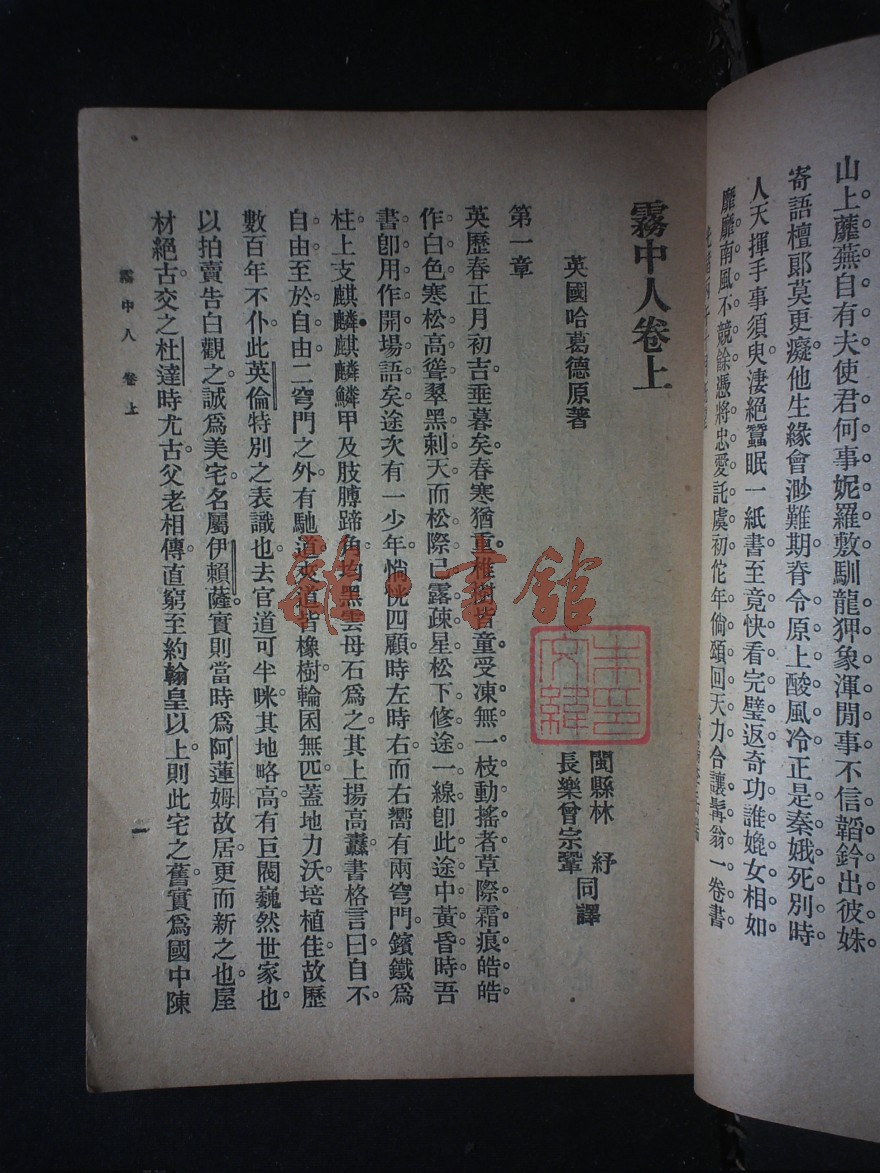 山上蘼蕪自有夫使君何事妮羅敷馴龍狎象渾閒事不信韜鈐出彼姝
寄語檀郞莫更癡他生緣會渺難期脊令原上酸風冷正是秦娥死別時
人天揮手事須臾凄絕蠶眠一紙書至竟快看完璧返奇功誰媲女相如
靡靡南風不競餘憑將忠愛託虞初佗年倘頌回天力合讓髯翁一卷書
霧中人卷上
英國哈葛德原著
閩縣林紓
長樂曾宗鞏
同譯
第一章
英歷春正月初吉垂暮矣。春寒猶重。椎樹皆童。受凍無一枝動搖者。草際霜痕皓皓
作白色。寒松高聳。翠黑刺天。而松際已露疎星。松下修途一線。卽此途中黃昏時。吾
書卽用作開場語矣。途次有一少年。惝恍四顧。時左時右。而右嚮有兩穹門。鑌鐵爲
柱。上支麒麟。麒麟鱗甲及肢膊蹄角。均黑雲母石爲之。其上揚高纛。書格言曰。自不
自由至於自由。二穹門之外有馳道。夾道皆橡樹。輪囷無匹。蓋地力沃。培植佳。故歷
數百年不仆。此英倫特別之表識也。去官道可半咪。其地略高。有巨閥巍然。世家也。
以拍賣告白觀之。誠爲美宅。名屬伊賴薩。實則當時爲阿蓮姆故居。更而新之也。屋
材絕古。交之杜達時尤古。父老相傳。直窮至約翰皇以上。則此宅之舊。實爲國中陳
霧中人 卷上
一
雜·書館